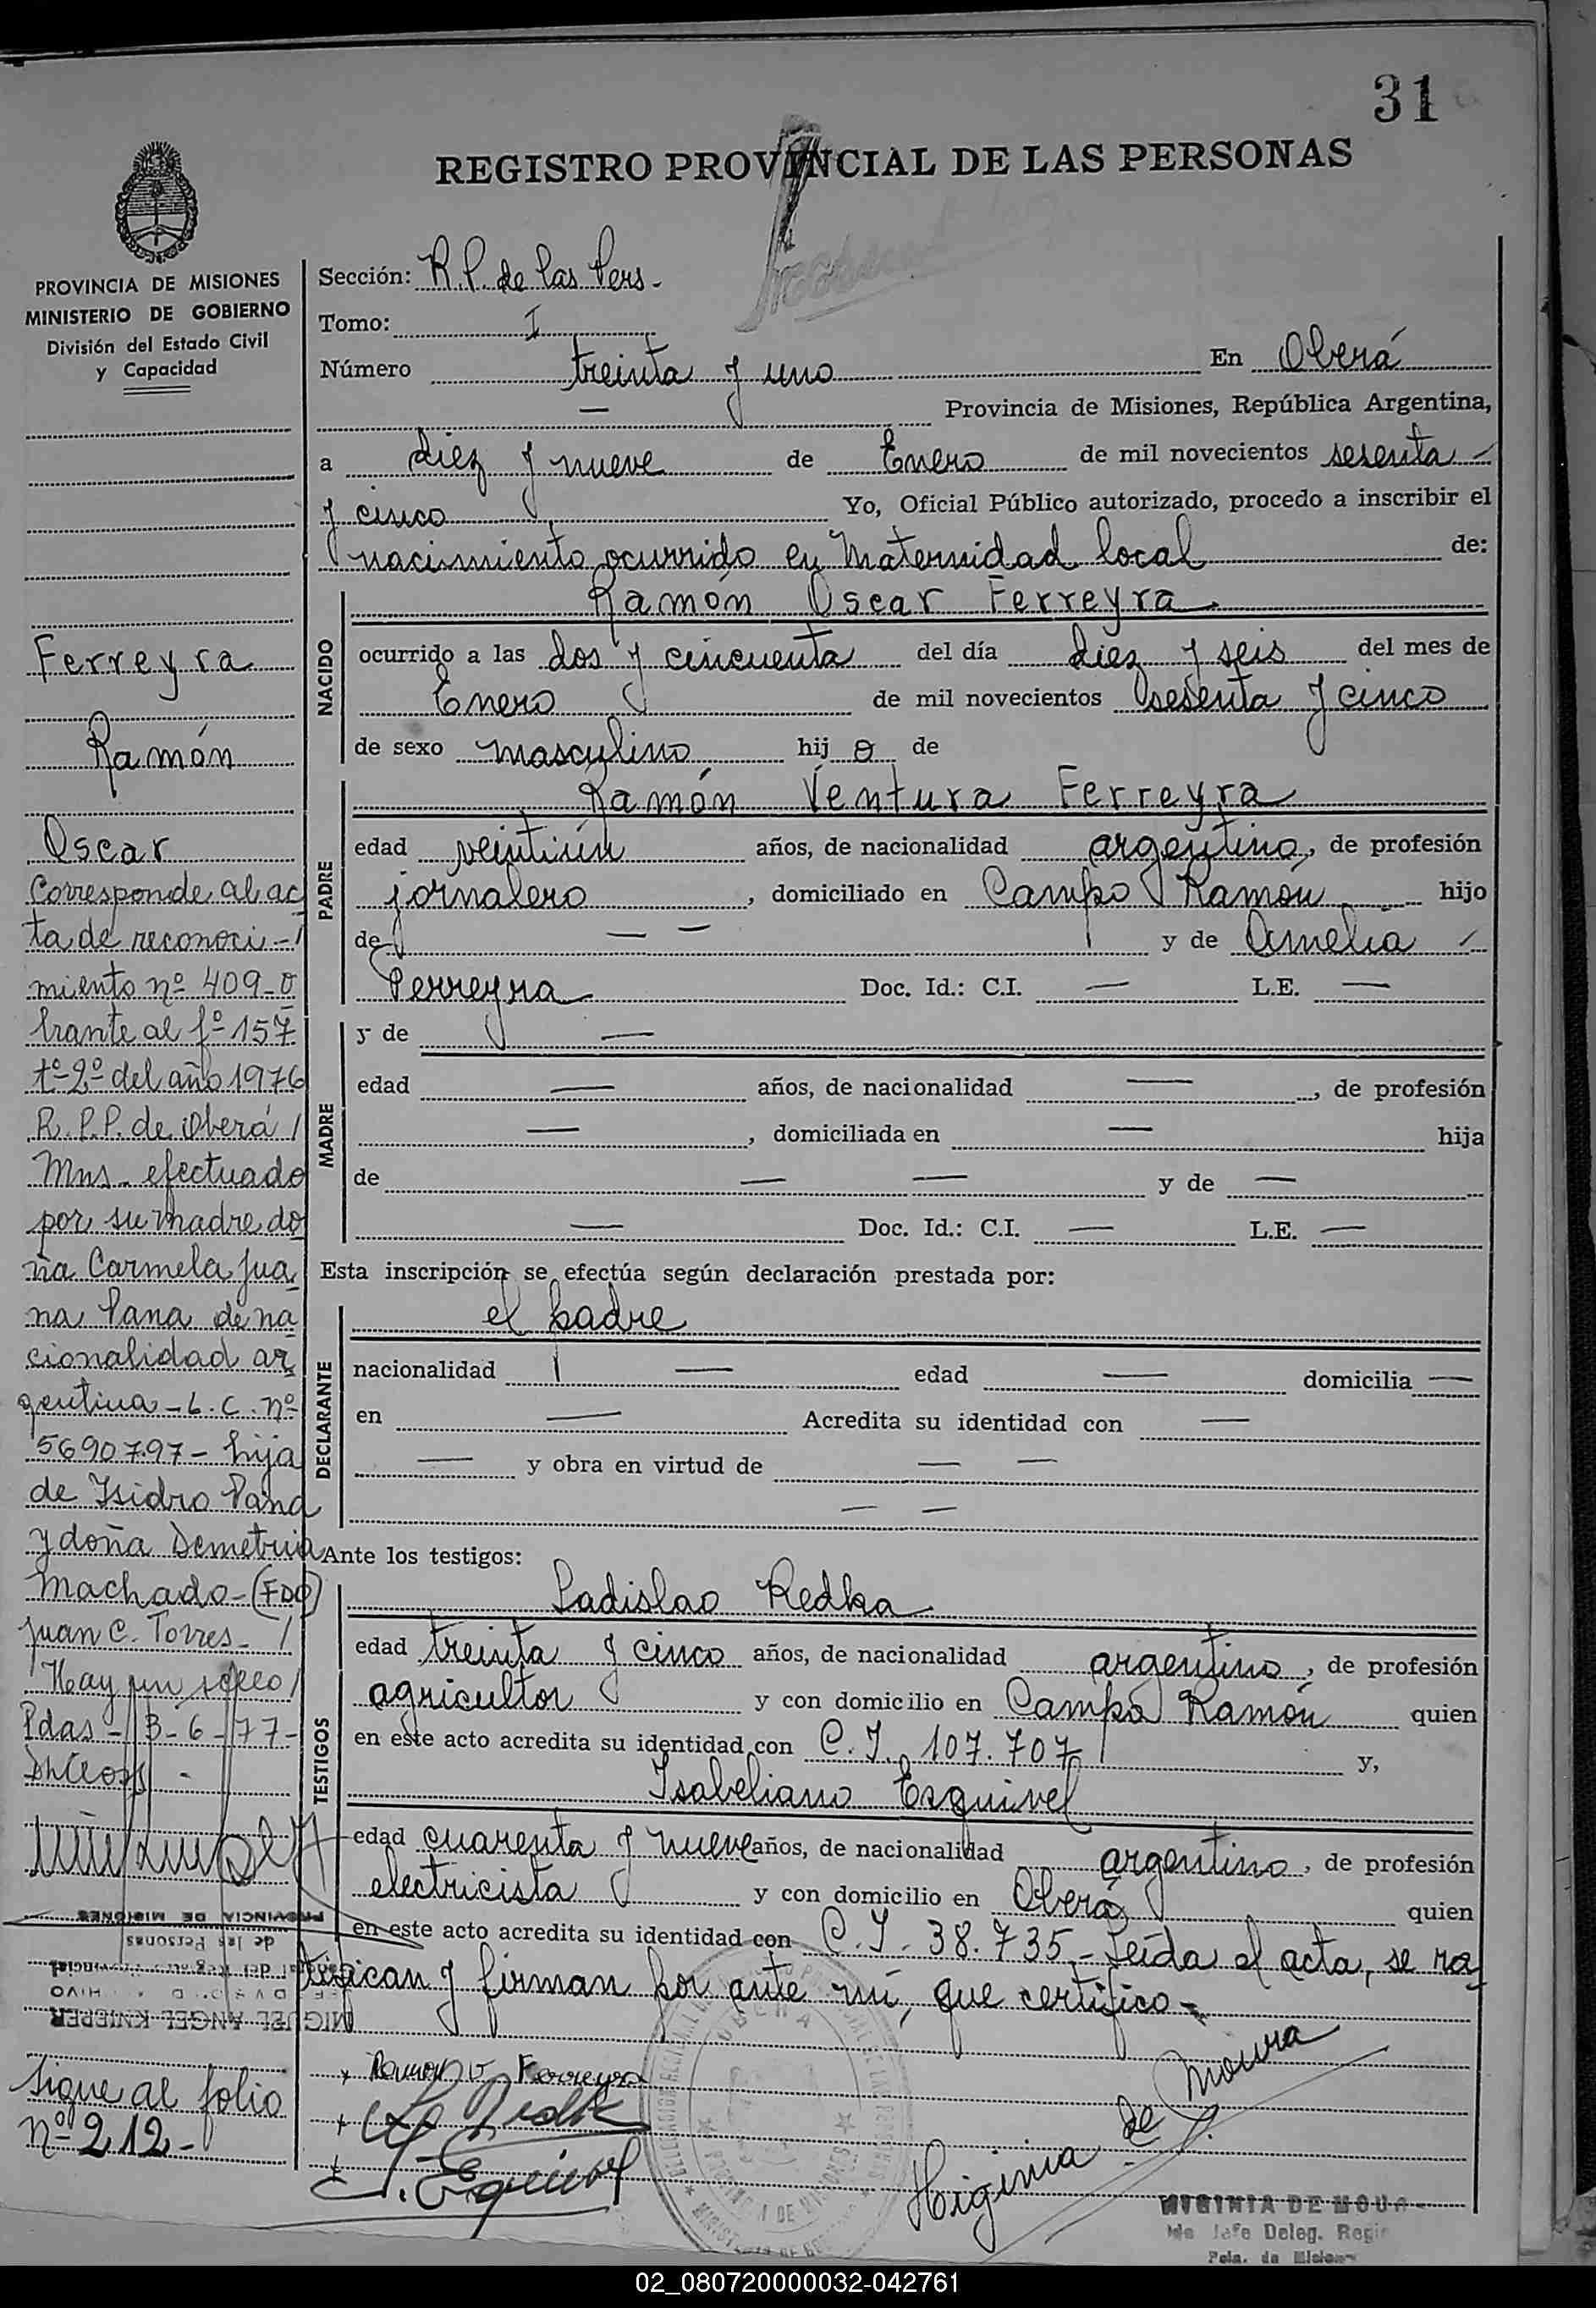 31
REGISTRO PROVINCIAL DE LAS PERSONAS
PROVINCIA DE MISIONES
MINISTERIO DE GOBIERNO
División del Estado Civil
y Capacidad
Ferreyra
Ramón
Oscar
Corresponde al ac
ta de reconoci-
miento nº 409-o
brante al fº 157
tº 2º del año 1976
R.P.P. de Oberá /
Mns. efectuado
por su madre do
ña Carmela Jua
na Pana de na
cionalidad ar
gentina - L.C. nº
5690797 - hija
de Isidro Pana
y doña Demetria
Machado - (FDO)
Juan C. Torres - /
Hay un sello /
Pdas - 13-6-77-
PROVINCIA DE MISIONES
de las Personas
MIGUEL ANGEL KNIEPER
Sigue al folio
nº 212 -
Sección: R.P. de las Pers.
Tomo: I
Número treinta y uno En Oberá
— Provincia de Misiones, República Argentina,
a diez y nueve de Enero de mil novecientos sesenta
y cinco Yo, Oficial Público autorizado, procedo a inscribir el
nacimiento ocurrido en Maternidad local de:
NACIDO
Ramón Oscar Ferreyra
ocurrido a las dos y cincuenta del día diez y seis del mes de
Enero de mil novecientos sesenta y cinco
de sexo masculino hij o de
PADRE
Ramón Ventura Ferreyra
edad veintiún años, de nacionalidad argentino, de profesión
jornalero, domiciliado en Campo Ramón hijo
de — — y de Amelia
Ferreyra Doc. Id.: C.I. — L.E. —
MADRE
y de —
edad — años, de nacionalidad —, de profesión
—, domiciliada en — hija
de — — y de —
— Doc. Id.: C.I. — L.E. —
Esta inscripción se efectúa según declaración prestada por:
DECLARANTE
el padre
nacionalidad — edad — domicilia —
en — Acredita su identidad con —
— y obra en virtud de — —
— —
Ante los testigos:
TESTIGOS
Ladislao Redka
edad treinta y cinco años, de nacionalidad argentino, de profesión
agricultor y con domicilio en Campo Ramón quien
en este acto acredita su identidad con C.I. 107.707 y,
Isabeliano Esquivel
edad cuarenta y nueve años, de nacionalidad argentino, de profesión
electricista y con domicilio en Oberá quien
en este acto acredita su identidad con C.I. 38.735 - Leída el acta, se ra
tifican y firman por ante mí, que certifico -
Ramon V Ferreyra
Higinia de Moura
HIGINIA DE MOURA
Jefe Deleg.
Pcia. de Misiones
OBERA
PROVINCIA DE MISIONES
02_080720000032-042761